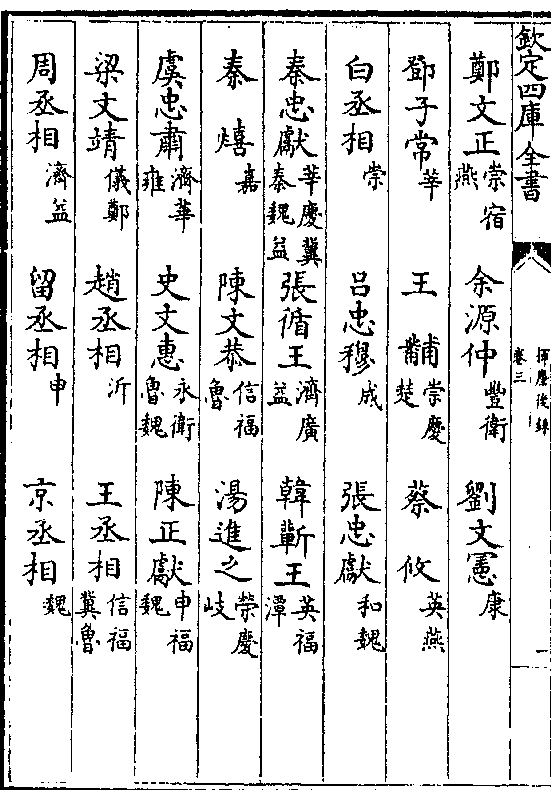 欽定四庫全書 揮麈後錄 卷三 一
鄭文正 崇宿燕 余源仲 豐衛 劉文憲 康
鄧子常 莘 王黼 崇慶楚 蔡攸 英燕
白丞相 崇 吕忠穆 成 張忠獻 和魏
秦忠獻 華慶冀秦魏益 張循王 濟廣益 韓蘄王 英福潭
秦熺 嘉 陳文恭 信福魯 湯進之 榮慶岐
虞忠肅 濟華雍 史文惠 永衛魯魏 陳正獻 申福魏
梁文靖 儀鄭 趙丞相 沂 王丞相 信福冀魯
周丞相 濟益 留丞相 申 京丞相 魏